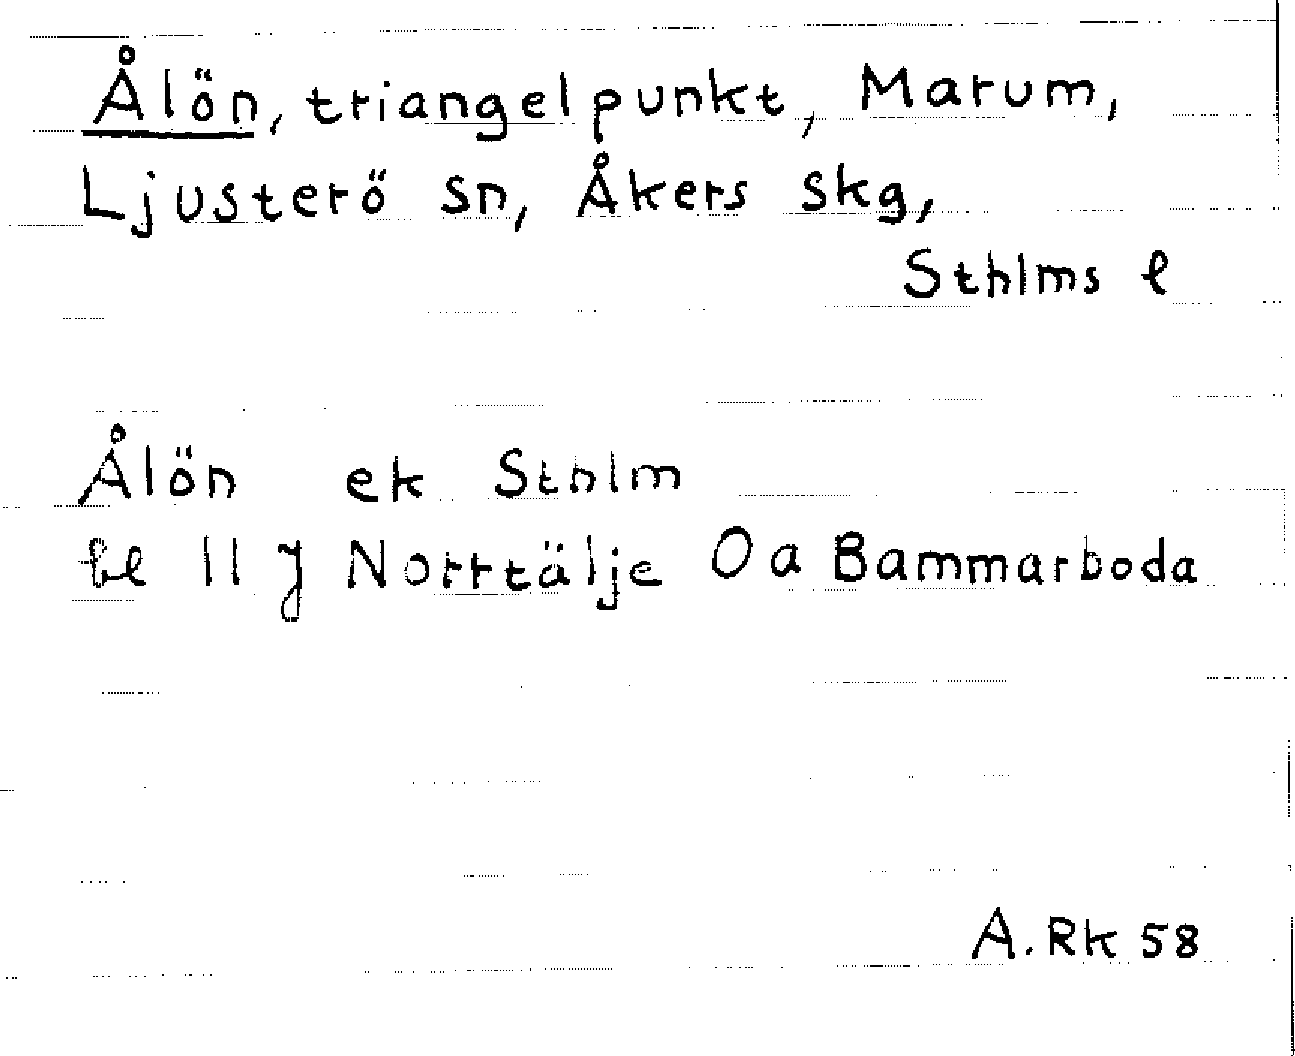 Ålön, triangelpunkt, Marum,
Ljusterö sn, Åkers skg,
Sthlms l
Ålön ek Sthlm
bl 11 J Norrtälje Oa Bammarboda
A. Rk 58